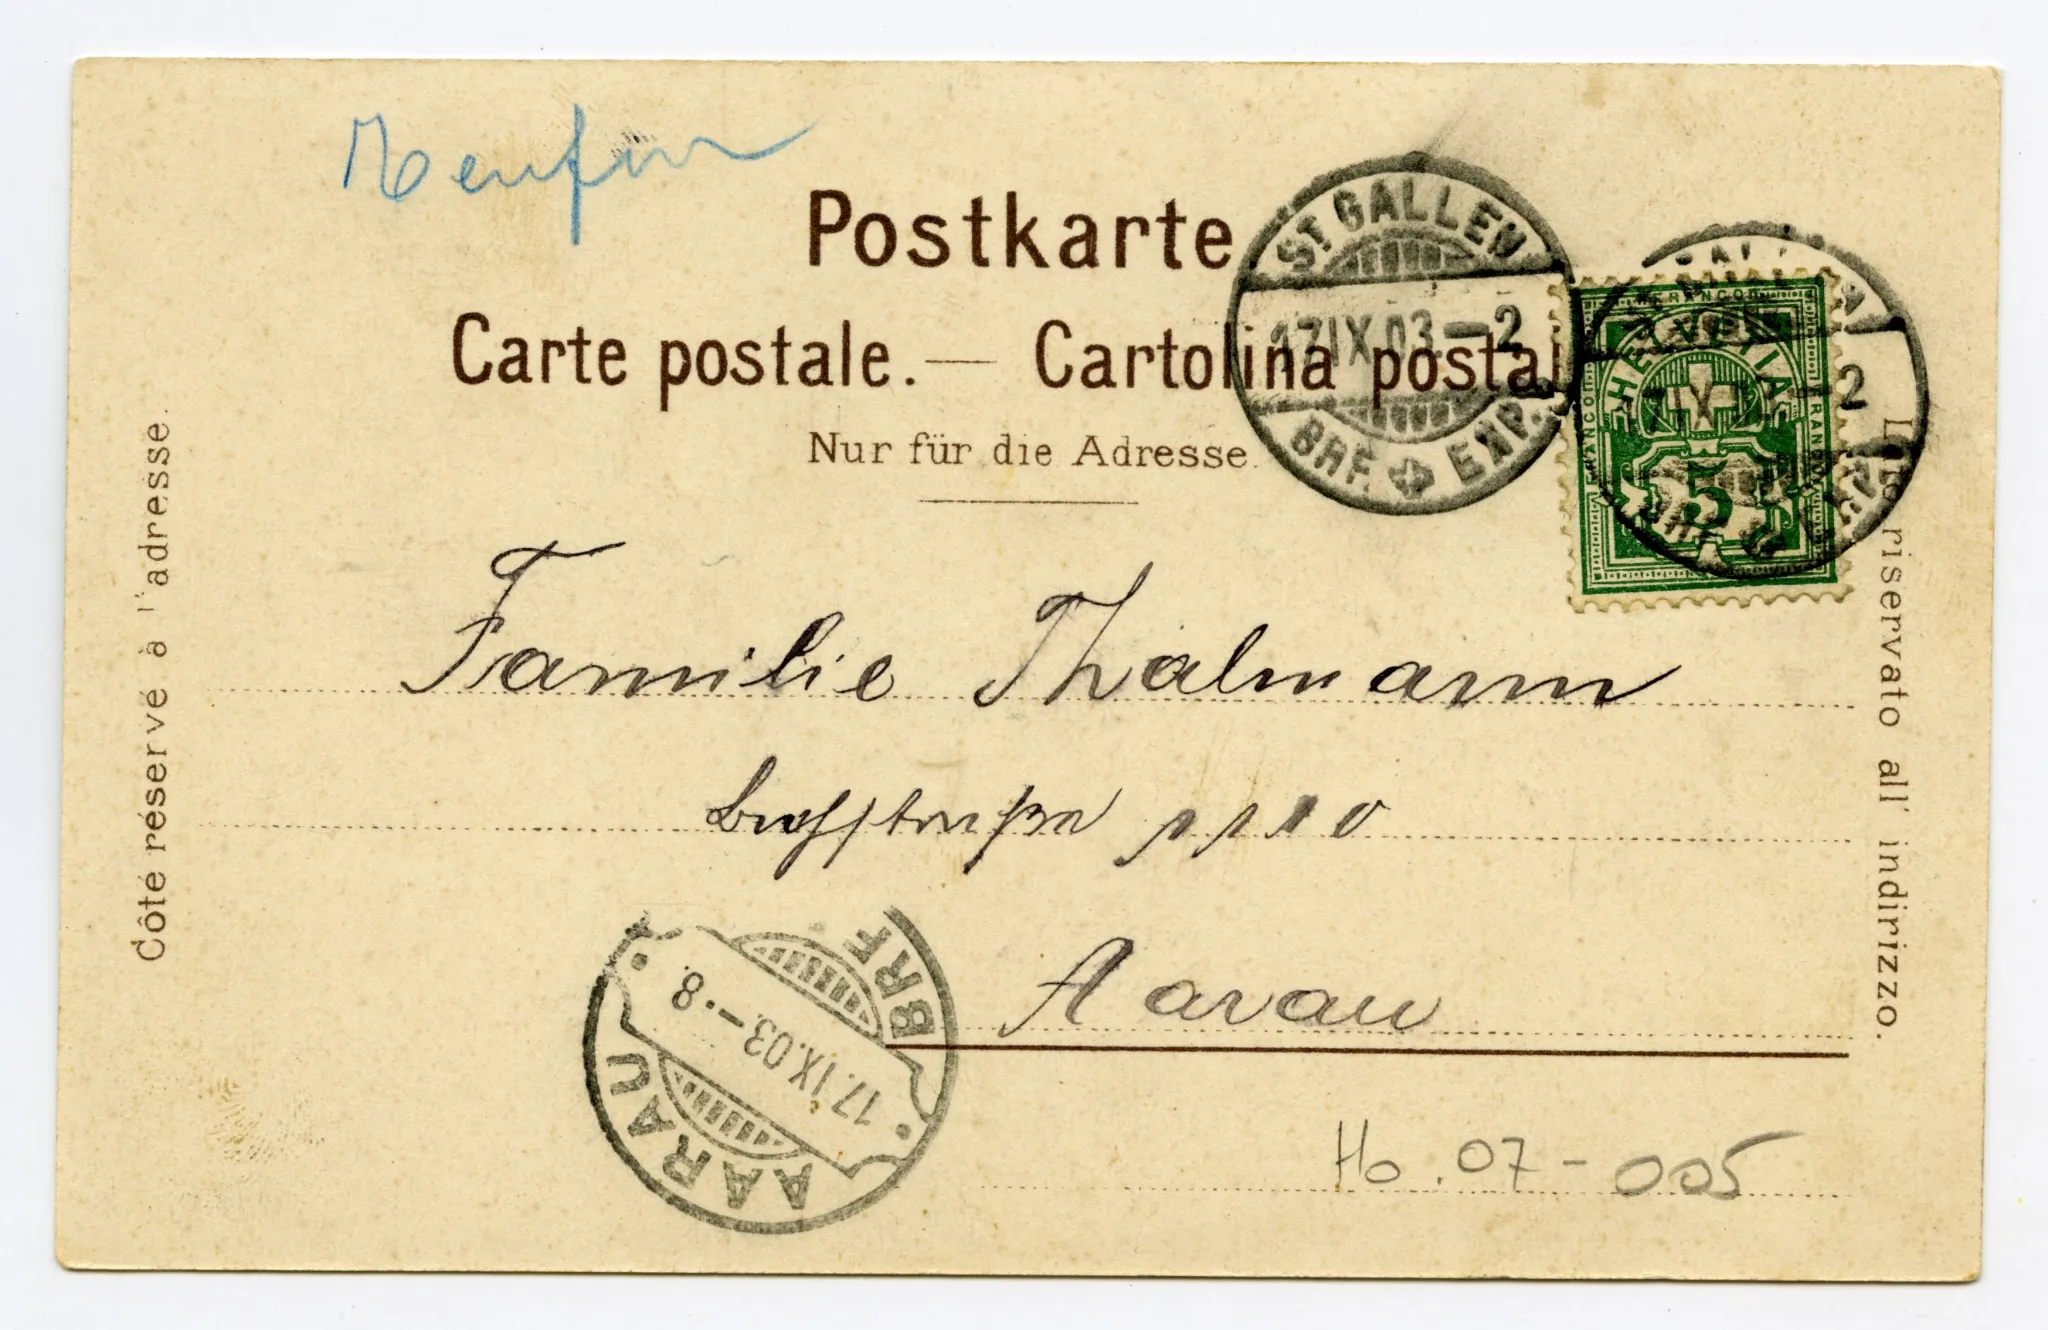 Postkarte
Carte postale. — Cartolina postal
Nur für die Adresse.
Côté réservé à l'adresse.
riservato all' indirizzo.
ST GALLEN
17 IX 03 – 2
BRF. EXP.
FRANCO
HELVETIA
5
Familie Thalmann
Aarau
AARAU
17. IX. 03. – 8.
BRF
Ho. 07 - 005